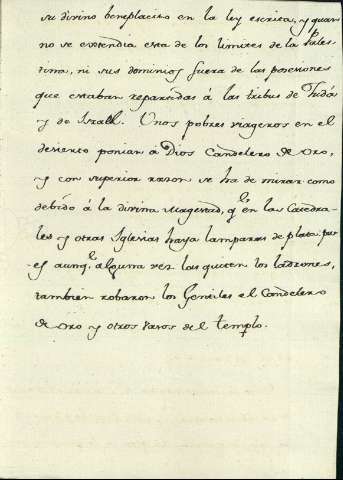 su divino beneplacito en la ley escrita, y quan
no se extendia esta de los limites de la Pales
tina, ni sus dominios fuera de las posesiones
que estaban repartidas á las tribus de Judá
y de Israèl. Unos pobres viageros en el
desierto ponian á Dios Candelero de Oro,
y con superior razon se ha de mirar como
debido á la divina Magestad, qᵉ en las Catedra-
les y otras Iglesias haya lamparas de plata: pu-
es aunqᵉ alguna vez las quiten los ladrones,
tambien robaron los Gentiles el Candelero
de oro y otros vasos del templo.